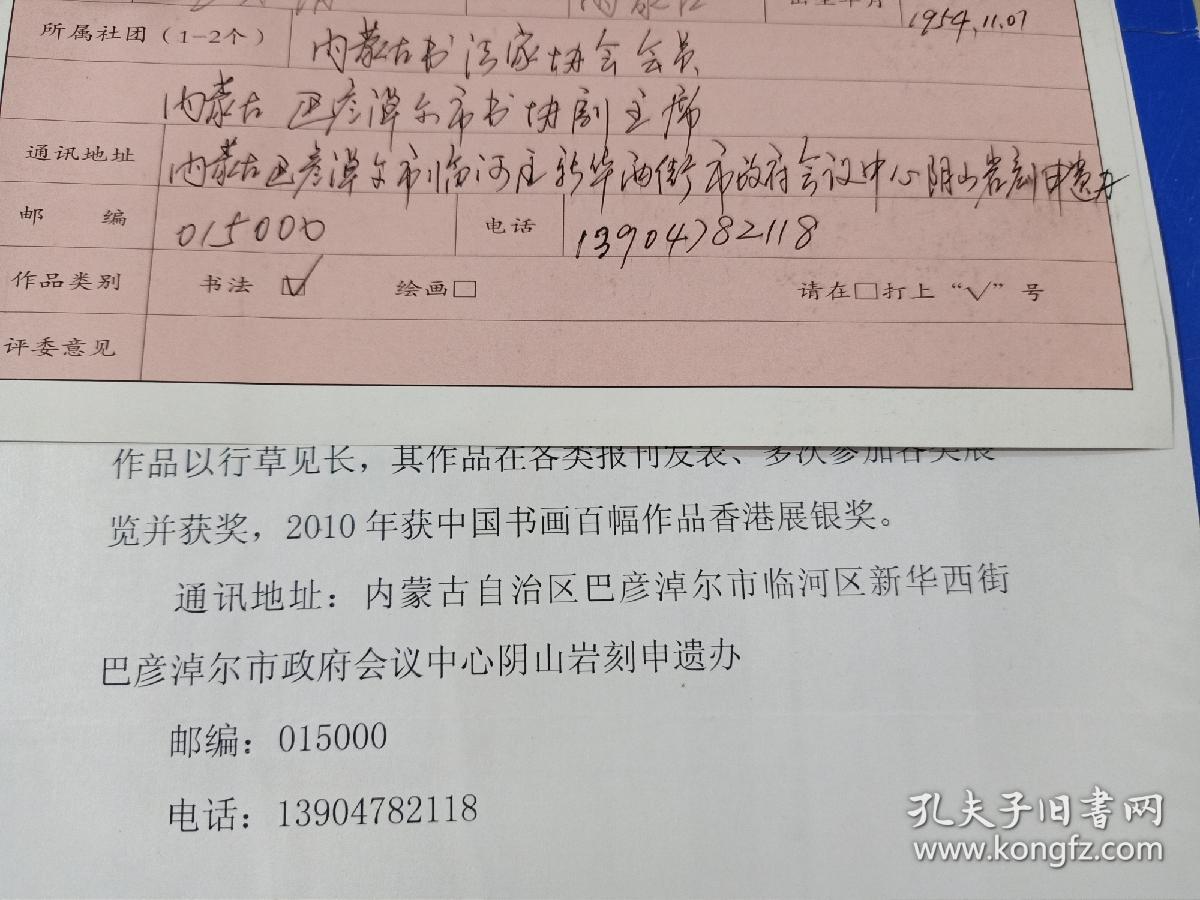 1954.11.07
所属社团（1-2个） 内蒙古书法家协会会员
内蒙古 巴彦淖尔市书协副主席
通讯地址 内蒙古巴彦淖尔市临河区新华西街市政府会议中心阴山岩刻申遗办
邮 编 015000 电话 13904782118
作品类别 书法 ☑ 绘画□ 请在□打上“√”号
评委意见
作品以行草见长，其作品在各类报刊发表、多次参加各类展
览并获奖，2010 年获中国书画百幅作品香港展银奖。
通讯地址：内蒙古自治区巴彦淖尔市临河区新华西街
巴彦淖尔市政府会议中心阴山岩刻申遗办
邮编：015000
电话：13904782118
孔夫子旧书网
www.kongfz.com